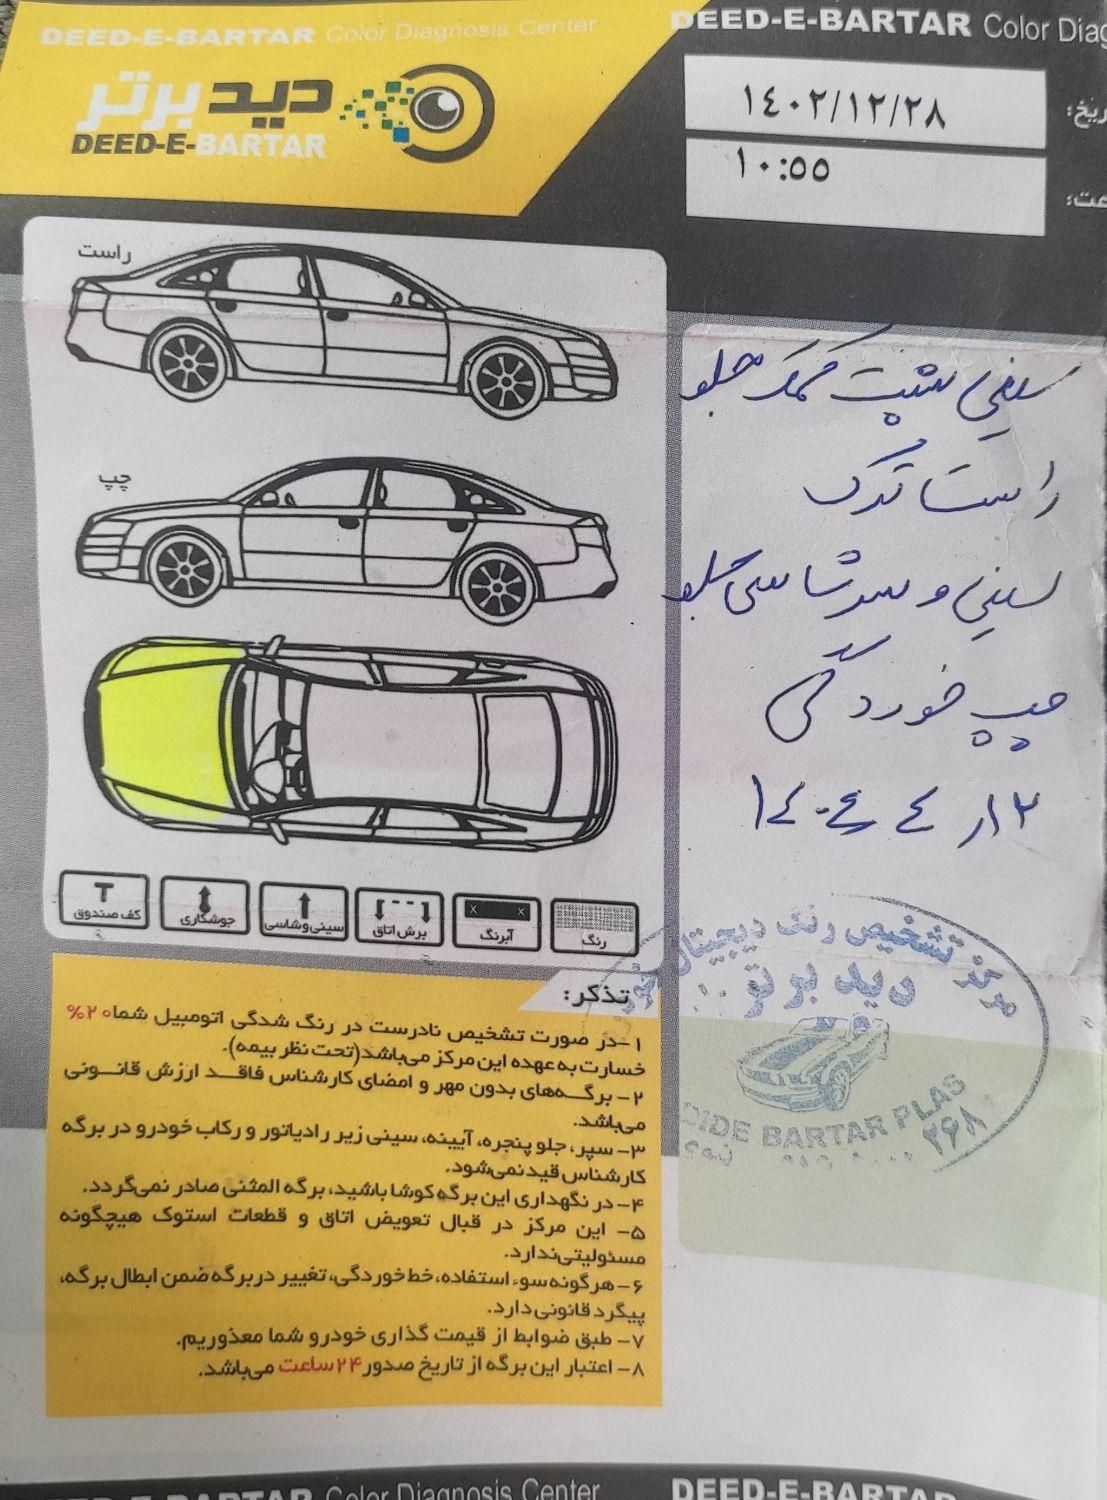 DEED-E-BARTAR Color Diagnosis Center
DEED-E-BARTAR Color Diag
دید برتر
DEED-E-BARTAR
۱۴۰۲/۱۲/۲۸
ریخ:
۱۰:۵۵
عت:
راست
چپ
سینی پشت کمک جلو
راست ترک
سینی و سرشاسی جلو
چپ خوردگی
کف صندوق
جوشکاری
سینی و شاسی
برش اتاق
آبرنگ
رنگ
تشخیص رنگ دیجیتال
دید برتر
DIDE BARTAR PLAS
۲۶۸
تذکر:
۱-در صورت تشخیص نادرست در رنگ شدگی اتومبیل شما ۲۰%
خسارت به عهده این مرکز می‌باشد(تحت نظر بیمه).
۲- برگه‌های بدون مهر و امضای کارشناس فاقد ارزش قانونی
می‌باشد.
۳- سپر، جلو پنجره، آیینه، سینی زیر رادیاتور و رکاب خودرو در برگه
کارشناس قید نمی‌شود.
۴- در نگهداری این برگه کوشا باشید، برگه المثنی صادر نمی‌گردد.
۵- این مرکز در قبال تعویض اتاق و قطعات استوک هیچگونه
مسئولیتی ندارد.
۶- هرگونه سوء استفاده، خط خوردگی، تغییر در برگه ضمن ابطال برگه،
پیگرد قانونی دارد.
۷- طبق ضوابط از قیمت گذاری خودرو شما معذوریم.
۸- اعتبار این برگه از تاریخ صدور ۲۴ ساعت می‌باشد.
DEED-E-BARTAR Color Diagnosis Center
DEED-E-BARTAR